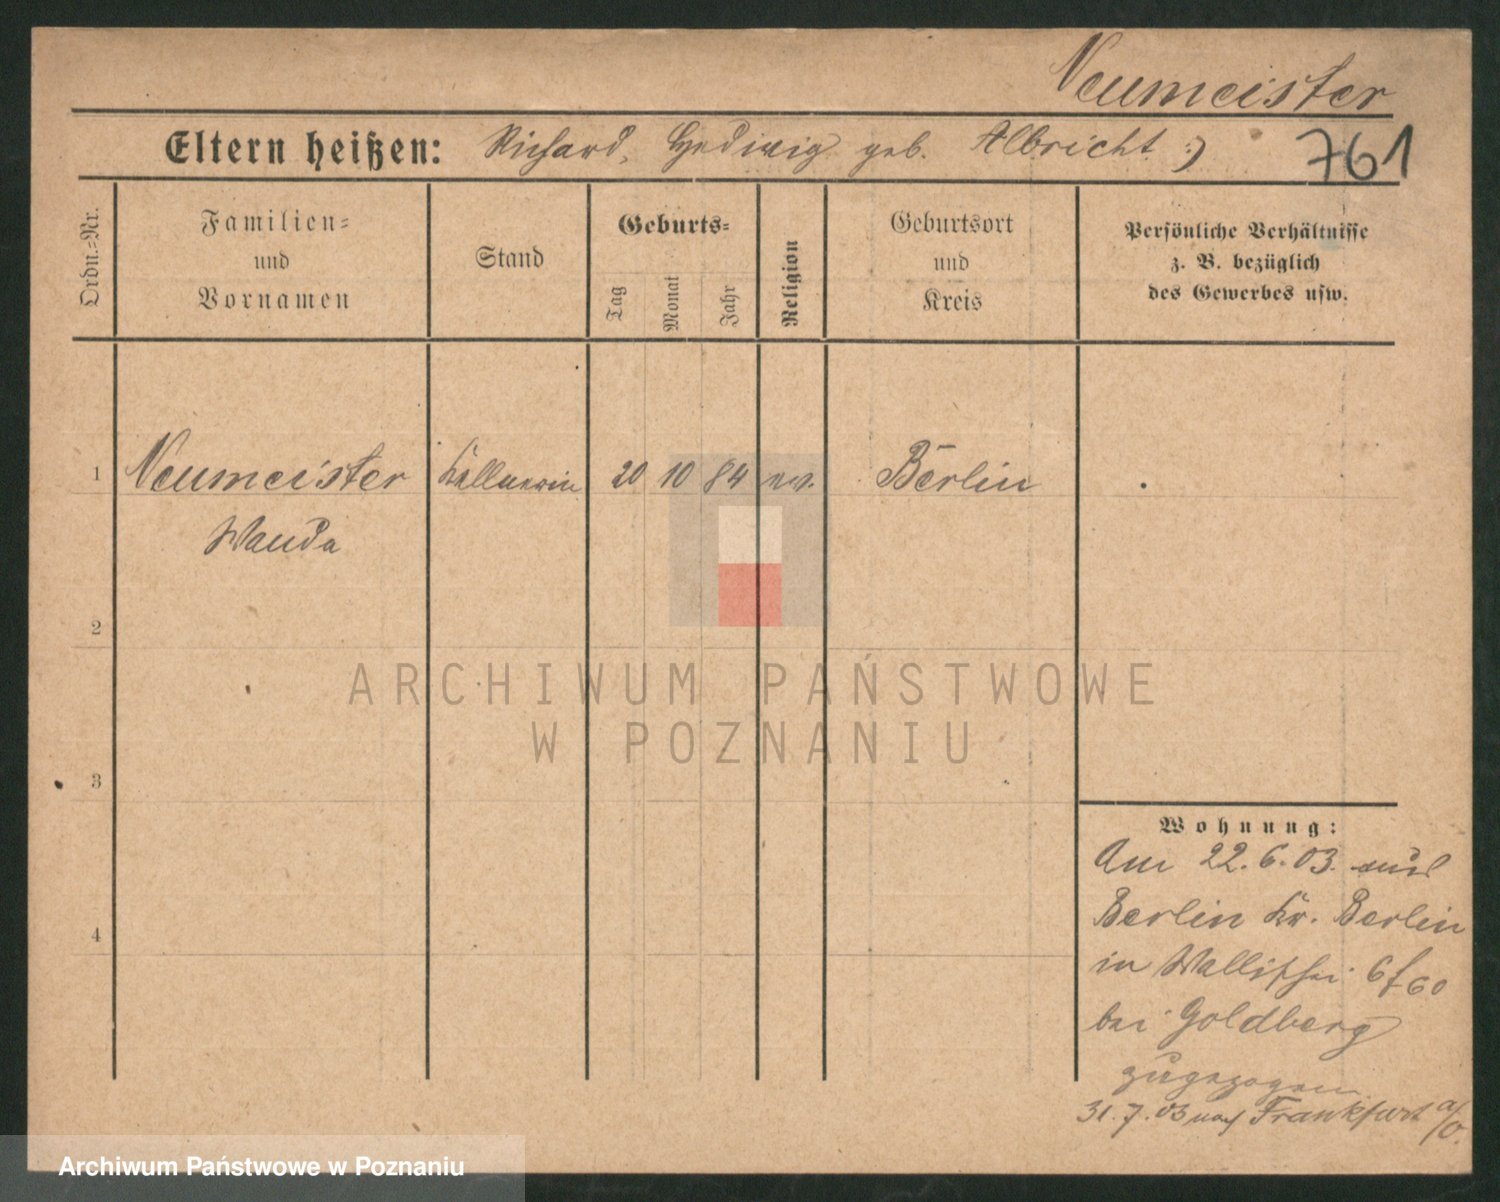 Neumeister
Eltern heißen: Richard, Hedwig geb. Albricht
761
Ordn.=Nr.
Familien=
und
Vornamen
Stand
Geburts=
Tag
Monat
Jahr
Religion
Geburtsort
und
Kreis
Persönliche Verhältnisse
z. B. bezüglich
des Gewerbes usw.
1 Neumeister Kellnerin 20 10 84 ev. Berlin
Wanda
2
ARCHIWUM PAŃSTWOWE
W POZNANIU
3
Wohnung:
Am 22.6.03. aus
Berlin Kr. Berlin
4
in Wallischei 6/60
bei Goldberg
zugezogen
31.7.03 nach Frankfurt a/O.
Archiwum Państwowe w Poznaniu